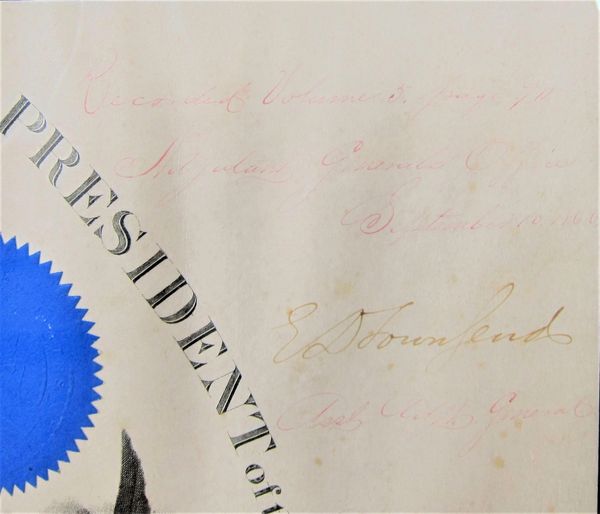 PRESIDENT of
Recorded Volume 5. page
Adjutant General's Office
September 10. 186
E D Townsend
Asst. Adjt. General